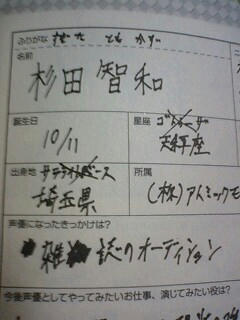 ふりがな すぎた ともかず
名前
杉田智和
誕生日
10/11
星座
天秤座
出身地
埼玉県
所属
(株)アトミックモ
声優になったきっかけは?
雑誌のオーディション
今後声優としてやってみたいお仕事、演じてみたい役は?